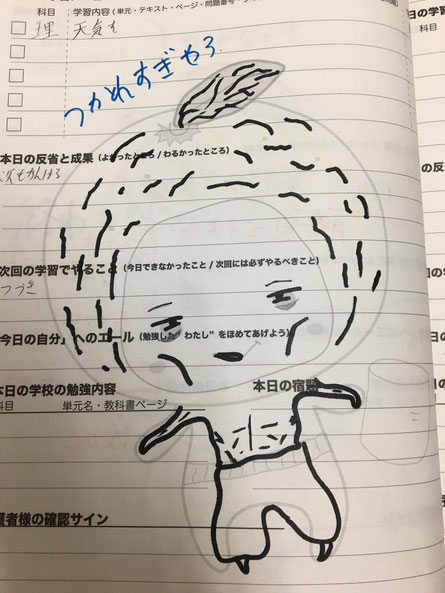 科目 学習内容(単元・テキスト・ページ・問題番号・
理 天気を
つかれすぎやろ
本日の反省と成果(よかったところ/わるかったところ)
次回の学習でやること(今日できなかったこと/次回には必ずやるべきこと)
つづき
今日の自分”へのエール(勉強した“わたし”をほめてあげよう)
本日の学校の勉強内容 本日の宿題
科目 単元名・教科書ページ
護者様の確認サイン